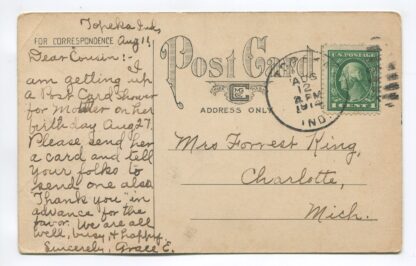 Topeka Ind.
Aug 11,
FOR CORRESPONDENCE
Dear Cousin:- I
am getting up
a Post Card Shower
for Mother on her
birthday Aug 27.
Please send her
a card and tell
your folks to
send one also.
Thank you in
advance for the
favor. We are all
well, busy & happy.
Sincerely, Grace E.
Post Card
ADDRESS ONLY
AUG
12
PM
1914
IND.
U.S. POSTAGE
1 CENT 1
Mrs Forrest King,
Charlotte,
Mich.